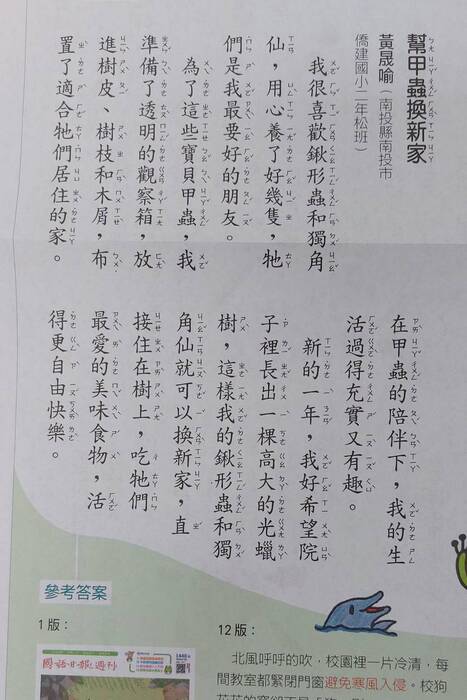 幫甲蟲換新家
黃晟喻（南投縣南投市
僑建國小二年松班）
我很喜歡鍬形蟲和獨角
仙，用心養了好幾隻，牠
們是我最要好的朋友。
為了這些寶貝甲蟲，我
準備了透明的觀察箱，放
進樹皮、樹枝和木屑，布
置了適合牠們居住的家。
在甲蟲的陪伴下，我的生
活過得充實又有趣。
新的一年，我好希望院
子裡長出一棵高大的光蠟
樹，這樣我的鍬形蟲和獨
角仙就可以換新家，直
接住在樹上，吃牠們
最愛的美味食物，活
得更自由快樂。
參考答案
1版：
國語日報週刊
12版：
北風呼呼的吹，校園裡一片冷清，每
間教室都緊閉門窗避免寒風入侵。校狗